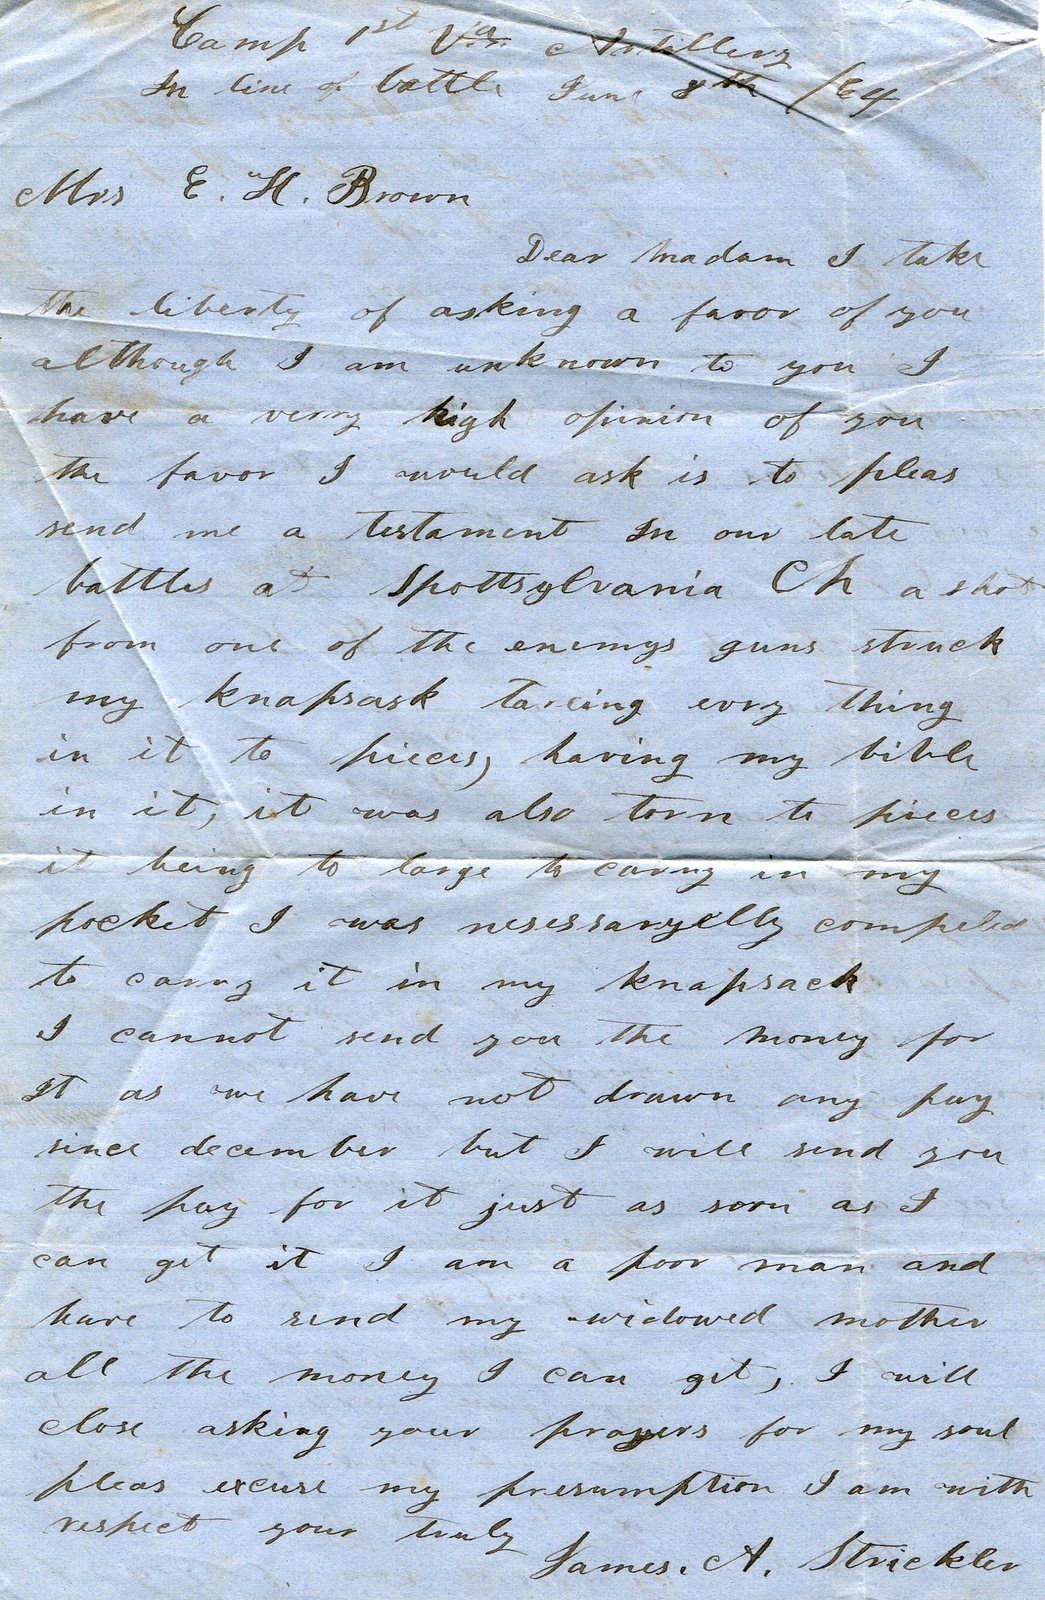 Camp 1st Va Artillery
In line of battle June 8th /64
Mrs E. H. Brown
Dear Madam I take
the liberty of asking a favor of you
although I am unknown to you I
have a verry high opinion of you
the favor I would ask is to pleas
send me a testament In our late
battles at Spottsylvania Ch a shot
from one of the enemys guns struck
my knapsask tareing evry thing
in it to pieces, having my bible
in it, it was also torn to pieces
it being to large to carry in my
pocket I was nesessaryelly compeled
to carry it in my knapsack
I cannot send you the money for
It as we have not drawn any pay
since december but I will send you
the pay for it just as soon as I
can get it I am a poor man and
have to send my widowed mother
all the money I can get, I will
close asking your prayers for my soul
pleas excuse my presumption I am with
respect your truly
James. A. Strickler